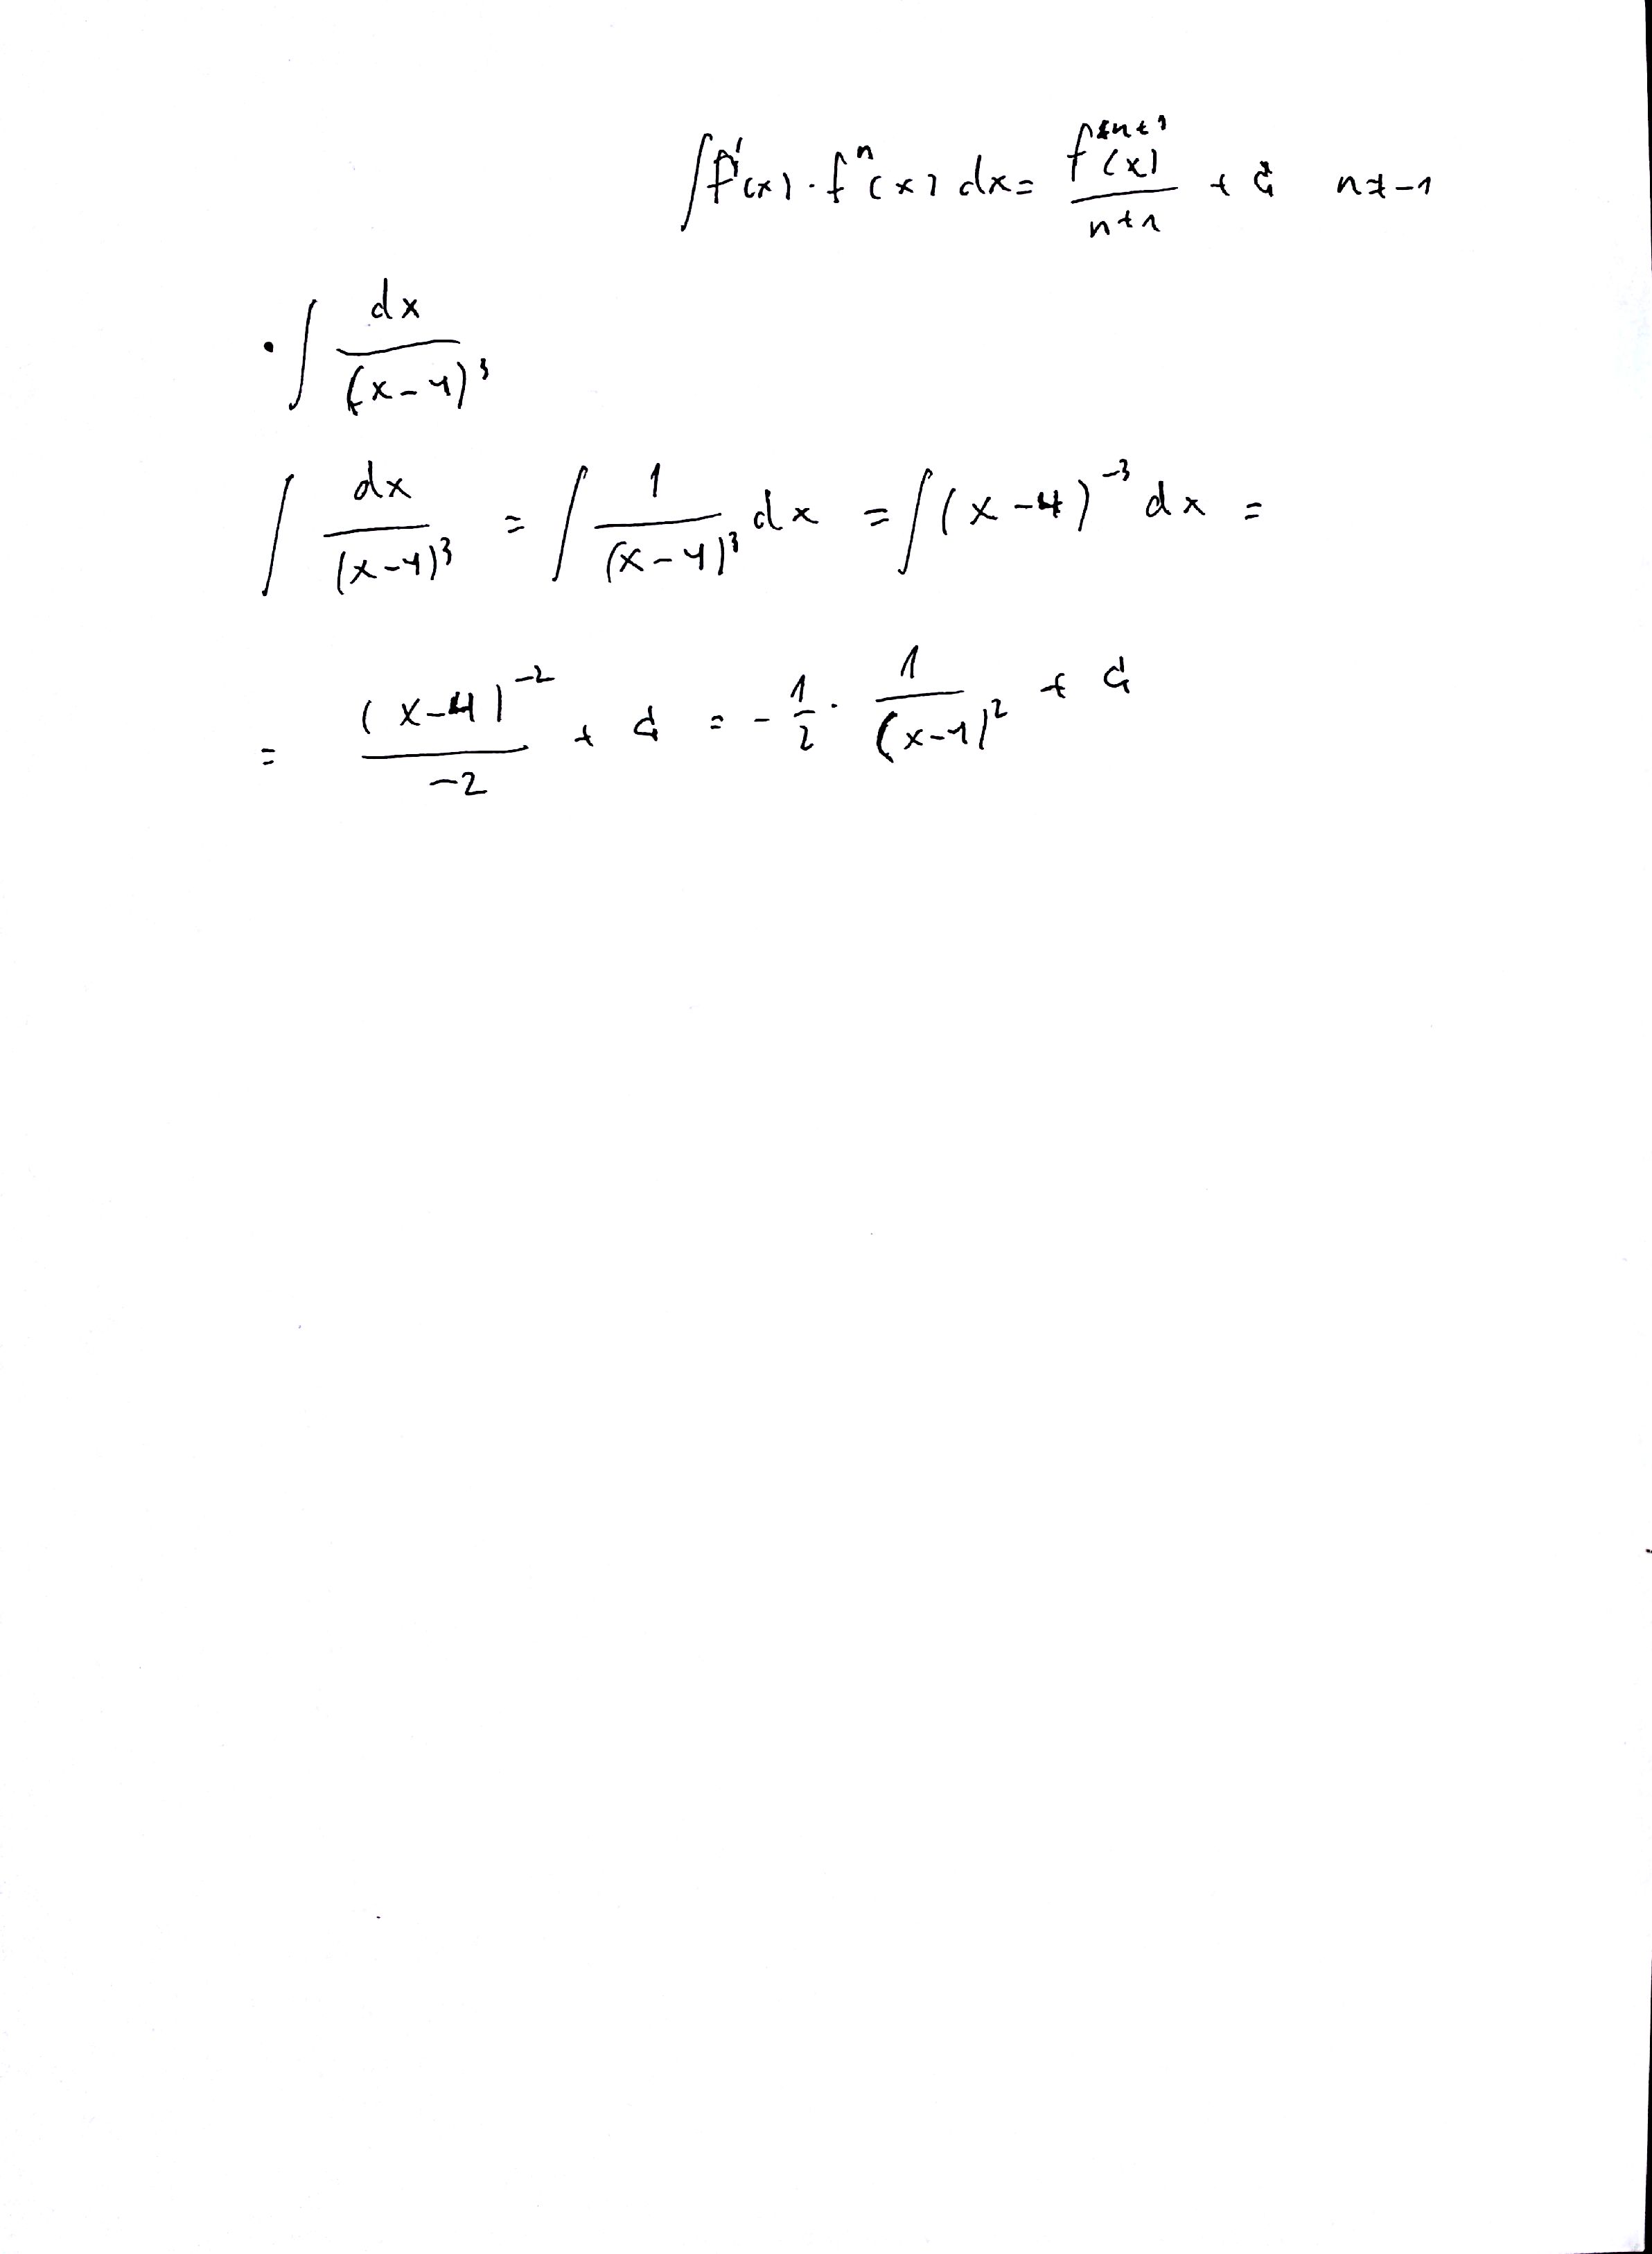 ∫f'(x)·fⁿ(x) dx = fⁿ⁺¹(x)/(n+1) + C n≠-1
· ∫ dx/(x-4)³
∫ dx/(x-4)³ = ∫ 1/(x-4)³ dx = ∫(x-4)⁻³ dx =
= (x-4)⁻²/-2 + C = -1/2 · 1/(x-4)² + C